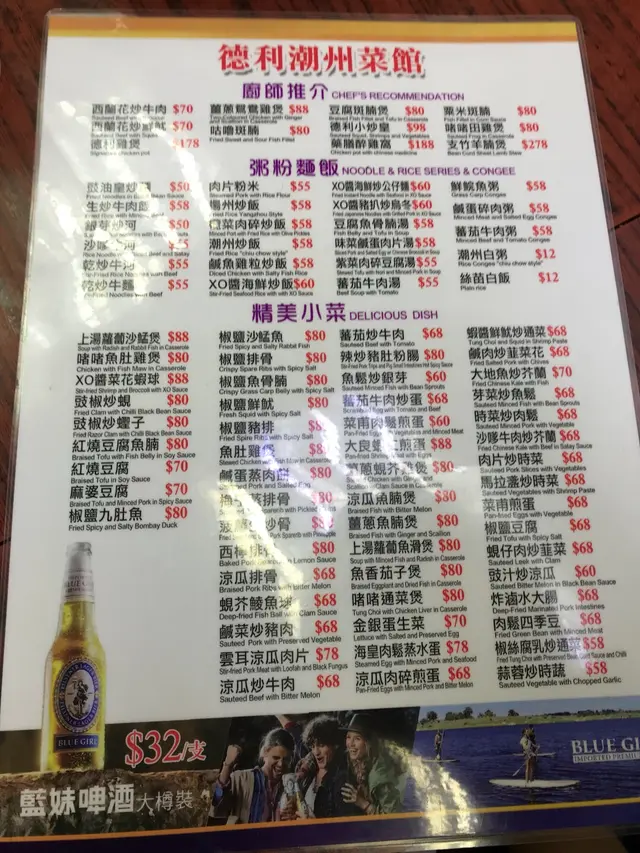 德利潮州菜館
廚師推介 CHEF'S RECOMMENDATION
西蘭花炒牛肉 $70
西蘭花炒 $70
德利雞煲 $178
薑蔥鴛鴦雞煲 $88
咕嚕斑腩 $80
Fried Sweet and Sour Fish Fillet
豆腐斑腩煲 $80
Braised Fish Fillet and Tofu in Casserole
德利小炒皇 $98
Sauteed Squid, Shrimps and Vegetables
藥膳醉雞窩 $188
Chicken pot with chinese medicine
粟米斑腩 $80
Fish Fillet with Corn Sauce
啫啫田雞煲 $80
Sauteed Frog in Casserole
支竹羊腩煲 $278
Bean Curd Street Lamb Stew
粥粉麵飯 NOODLE & RICE SERIES & CONGEE
豉油皇炒麵 $50
生炒牛肉飯 $58
銀芽炒河 $50
沙嗲牛河
乾炒牛河 $55
乾炒牛麵 $55
肉片粉米 $55
Stewed Pork with Rice Flour
楊州炒飯 $58
Fried Rice Yangzhou Style
欖菜肉碎炒飯 $58
Minced Pot with Fried Rice with Olive Pickles
潮州炒飯 $58
Fried Rice "chiu chow style"
鹹魚雞粒炒飯 $58
Diced Chicken with Salty Fish Rice
XO醬海鮮炒飯$60
Stir-fried Seafood Rice with with XO Sauce
XO醬海鮮炒公仔麵$60
Fried Instant Noodle with Seafood in XO Sauce
XO醬豬扒炒烏冬$60
Fried Japanese Noodles with Grilled Pork in XO Sauce
豆腐魚骨腩湯 $58
Fish Belly and Tofu in Soup
味菜鹹蛋肉片湯$58
紫菜肉碎豆腐湯$55
Stewed Tofu with Nori and Minced Pork in Soup
蕃茄牛肉湯 $55
Beef Soup with Tomato
鮮鯇魚粥 $58
Grass Carp Congee
鹹蛋碎肉粥 $58
Minced Meat and Salted Egg Congee
蕃茄牛肉粥 $58
Minced Beef and Tomato Congee
潮州白粥 $12
Rice Congee "chiu chow style"
絲苗白飯 $12
Plain rice
精美小菜 DELICIOUS DISH
上湯蘿蔔沙艋煲 $88
Soup with Radish and Rabbit Fish in Casserole
啫啫魚肚雞煲 $80
Chicken with Fish Maw in Casserole
XO醬菜花蝦球 $88
Stir-fried Shrimp and Broccoli with XO Sauce
豉椒炒蜆 $80
Fried Clam with Chilli Black Bean Sauce
豉椒炒蟶子 $80
Fried Razor Clam with Chilli Black Bean Sauce
紅燒豆腐魚腩 $80
Braised Tofu with Fish Belly in Soy Sauce
紅燒豆腐 $70
Braised Tofu in Soy Sauce
麻婆豆腐 $70
Braised Tofu and Minced Pork in Spicy Sauce
椒鹽九肚魚 $80
Fried Spicy and Salty Bombay Duck
椒鹽沙艋魚 $80
Fried Spicy and Salty Rabbit Fish
椒鹽排骨 $80
Crispy Spare Ribs with Spicy Salt
椒鹽魚骨腩 $80
Crispy Grass Carp Belly with Spicy Salt
椒鹽鮮魷 $80
Fresh Squid with Spicy Salt
椒鹽豬排 $80
Fried Spire Ribs with Spicy Salt
魚肚雞煲 $80
鹹蛋蒸肉餅 $80
蒸排骨 $80
炒骨 $80
西檸排骨 $80
涼瓜排骨 $68
Braised Pork Ribs with Bitter Melon
蜆芥鯪魚球 $68
Deep-fried Fish Ball with Clam Sauce
鹹菜炒豬肉 $68
Sauteed Pork with Preserved Vegetable
雲耳涼瓜肉片 $78
Stir-fried Pork Meat with Loofah and Black Fungus
涼瓜炒牛肉 $68
Sauteed Beef with Bitter Melon
蕃茄炒牛肉 $68
Sauteed Beef with Tomato
辣炒豬肚粉腸 $80
魚鬆炒銀芽 $60
Sauteed Minced Fish with Bean Sprouts
蕃茄牛肉炒蛋 $68
Scrambled Egg with Tomato and Beef
菜甫肉鬆煎蛋 $60
Pan-Fried Eggs with Vegetables and Minced Meat
大良煎蛋 $88
薑蔥蜆芥雞煲 $80
涼瓜魚腩煲 $80
Braised Fish with Bitter Melon
薑蔥魚腩煲 $80
Braised Fish with Ginger and Scallion
上湯蘿蔔魚滑煲 $80
Soup with Minced Fish and Radish in Casserole
魚香茄子煲 $80
Braised Eggplant and Dried Fish in Casserole
啫啫通菜煲 $80
Tung Choi with Chicken Liver in Casserole
金銀蛋生菜 $70
Lettuce with Salted and Preserved Egg
海皇肉鬆蒸水蛋 $78
Steamed Egg with Minced Pork and Seafood
涼瓜肉碎煎蛋 $68
Pan-Fried Eggs with Minced Pork and Bitter Melon
蝦醬鮮魷炒通菜$68
Tung Choi and Squid in Shrimp Paste
鹹肉炒韮菜花 $68
Salted Pork with Chives
大地魚炒芥蘭 $70
Fried Chinese Kale with Fish
芽菜炒魚鬆 $68
Sauteed Minced Fish with Bean Sprouts
時菜炒肉鬆 $68
Sauteed Minced Pork with Vegetable
沙嗲牛肉炒芥蘭 $68
Fried Chinese Kale with Beef in Satay Sauce
肉片炒時菜 $68
Sauteed Pork Slices with Vegetables
馬拉盞炒時菜 $68
Sauteed Vegetables with Shrimp Paste
菜甫煎蛋 $68
Pan-fried Eggs with Vegetable
椒鹽豆腐 $68
Fried Tofu with Spicy Salt
蜆仔肉炒韮菜 $68
Sauteed Leek with Clam
豉汁炒涼瓜 $60
Sauteed Bitter Melon in Black Bean Sauce
炸滷水大腸 $68
Deep-fried Marinated Pork Intestines
肉鬆四季豆 $68
Fried Green Bean with Minced Meat
椒絲腐乳炒通菜$58
Fried Tung Choi with Preserved Bean Curd Sauce and Chilli
蒜蓉炒時蔬 $58
Sauteed Vegetable with Chopped Garlic
BLUE GIRL
$32/支
藍妹啤酒 大樽裝
BLUE GI
IMPORTED PREMI